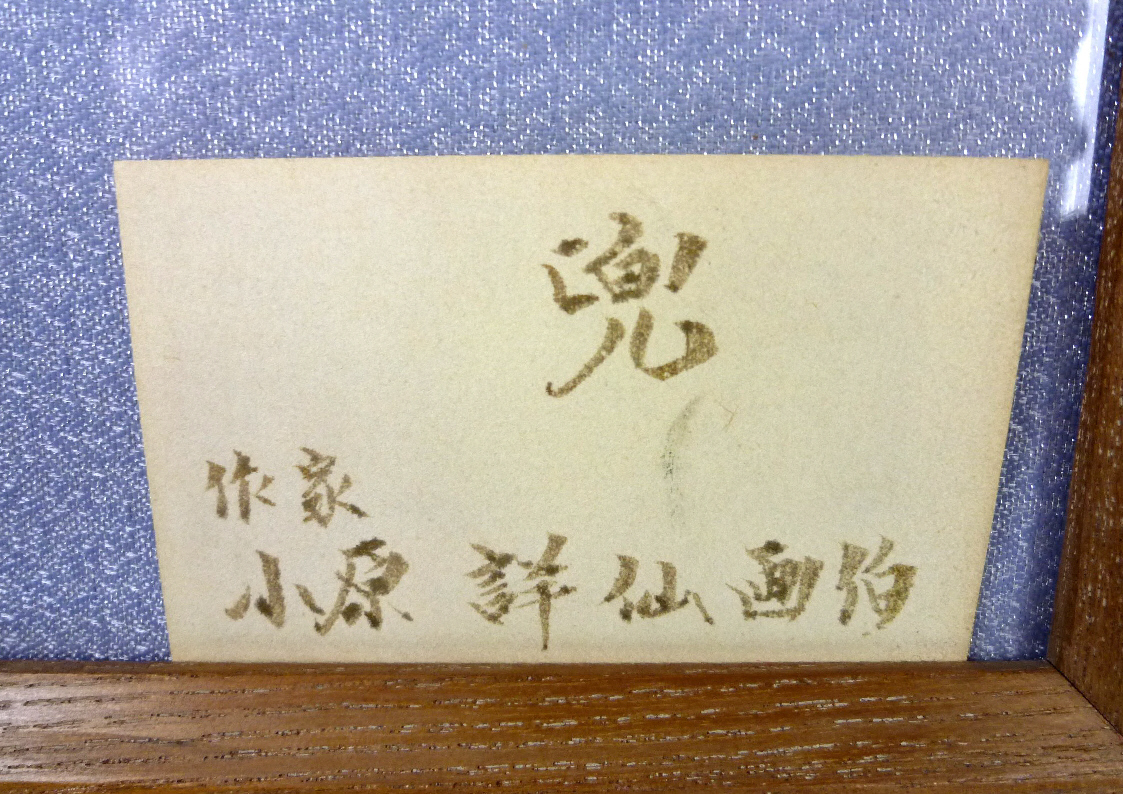 兜
作家
小原 詳仙画伯